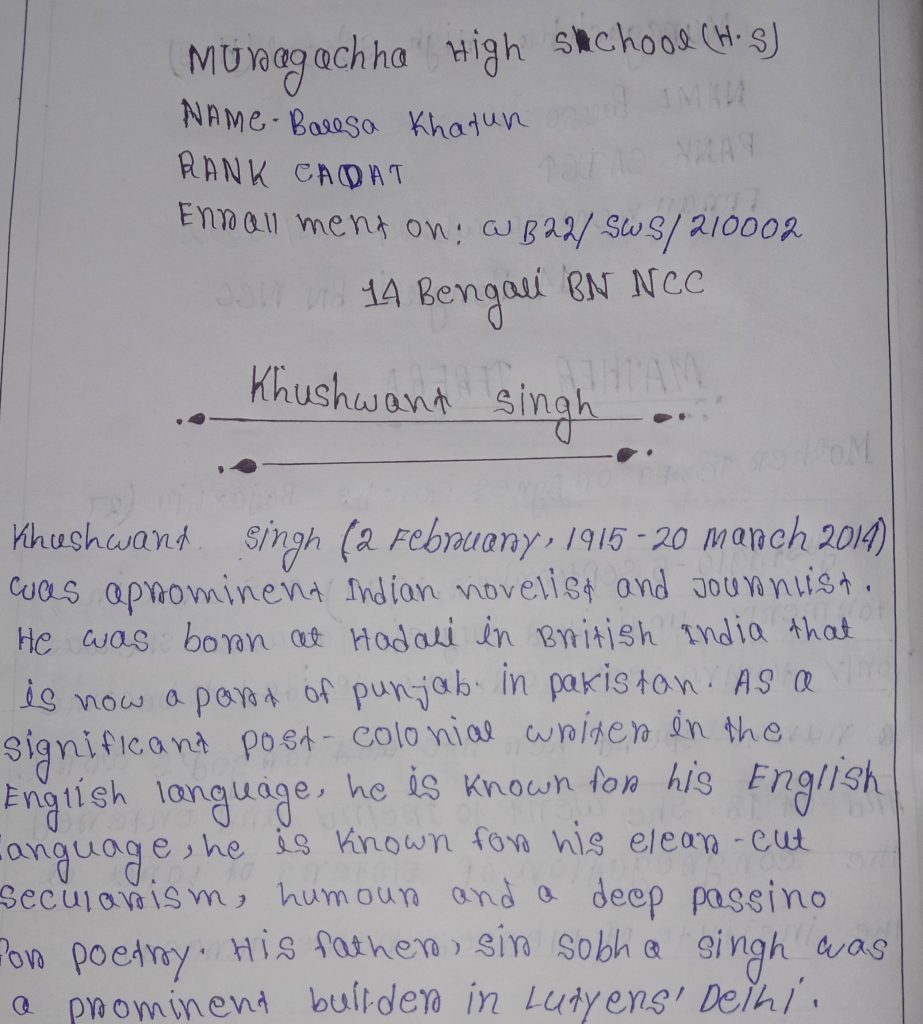 Muragachha High School (H.S)
NAME - Baresa Khatun
RANK CADAT
Enrall ment on: WB22/SWS/210002
14 Bengali BN NCC
Khushwant singh
Khushwant singh (2 February, 1915 - 20 march 2014)
was aprominent Indian novelist and Journlist.
He was born at Hadali in British india that
is now a part of punjab. in pakistan. AS a
significant post-colonial writer in the
English language, he is known for his English
language, he is known for his elear-cut
secularism, humour and a deep passino
For poetry. His father, sir sobha singh was
a prominent builder in Lutyens' Delhi.